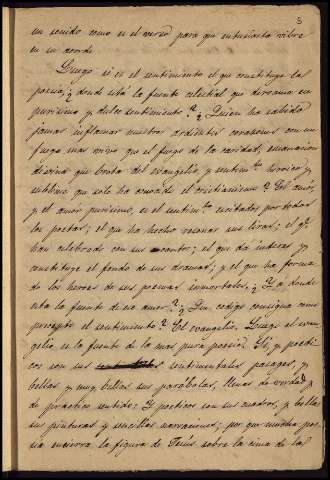 5
un sonido como es el verso para que entusiasta vibre
en su acorde
Luego si es el sentimiento el que constituye la
poesia, ¿donde esta la fuente celestial que derrama su
purisimo y dulce sentimiento? ¿Quien ha sabido
jamas inflamar nuestros ardientes corazones con un
fuego mas vivo que el fuego de la caridad, emanacion
divina que brota del evangelio, y sentimto heroico y
sublime que solo ha conocido el cristianismo? El amor,
y el amor purisimo, es el sentimto escitados por todos
los poetas; el que ha hecho resonar sus liras; el q.
han celebrado con sus cantos; el que da interes y
constituye el fondo de sus dramas; y el que ha forma
do los heroes de sus poemas inmortales. ¿Y donde
esta la fuente de ese amor? ¿Que codigo consigna como
precepto el sentimiento? El evangelio. Luego el evan
gelio es la fuente de la mas pura poesia. Si, y poeti
cos son sus sentimentales pasages, y
bellas y muy bellas sus parábolas, llenas de verdad y
de practico sentido: Y poeticos son sus cuadros, y bellas
sus pinturas y sencillas narraciones; por que mucha poe
sia encierra la figura de Jesús sobre la cima de las